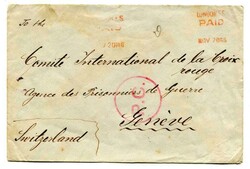 To the
PAID
Comité International de la Croix
rouge
Agence des Prisonniers de Guerre
P.C.
Genève
Switzerland